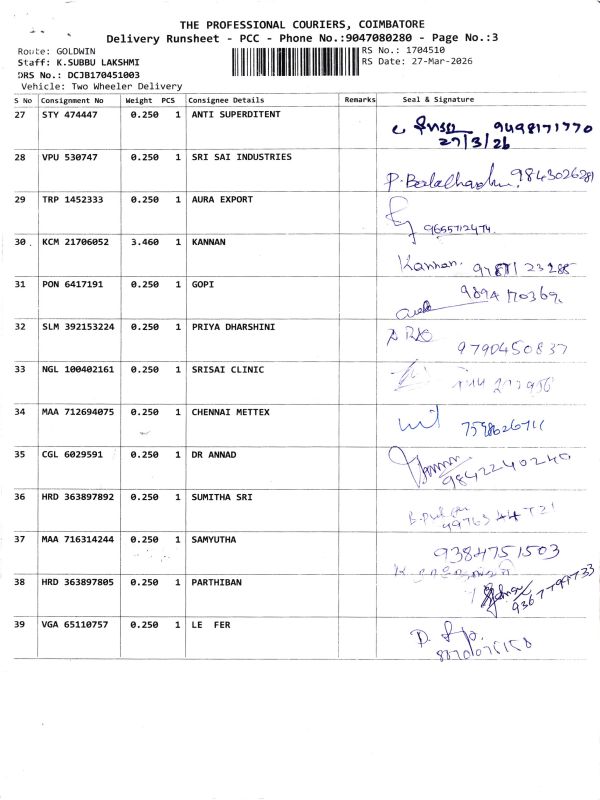 THE PROFESSIONAL COURIERS, COIMBATORE
Delivery Runsheet - PCC - Phone No.:9047080280 - Page No.:3
Route: GOLDWIN
RS No.: 1704510
Staff: K.SUBBU LAKSHMI
RS Date: 27-Mar-2026
DRS No.: DCJB170451003
Vehicle: Two Wheeler Delivery
S No Consignment No Weight PCS Consignee Details Remarks Seal & Signature
27 STY 474447 0.250 1 ANTI SUPERDITENT
9498171770
27/3/26
28 VPU 530747 0.250 1 SRI SAI INDUSTRIES
9843026281
29 TRP 1452333 0.250 1 AURA EXPORT
9655712474.
30 KCM 21706052 3.460 1 KANNAN
Kannan.
31 PON 6417191 0.250 1 GOPI
9894170369.
32 SLM 392153224 0.250 1 PRIYA DHARSHINI
9790450837
33 NGL 100402161 0.250 1 SRISAI CLINIC
34 MAA 712694075 0.250 1 CHENNAI METTEX
7598626711
35 CGL 6029591 0.250 1 DR ANNAD
9842240240
36 HRD 363897892 0.250 1 SUMITHA SRI
37 MAA 716314244 0.250 1 SAMYUTHA
9384751503
38 HRD 363897805 0.250 1 PARTHIBAN
39 VGA 65110757 0.250 1 LE FER